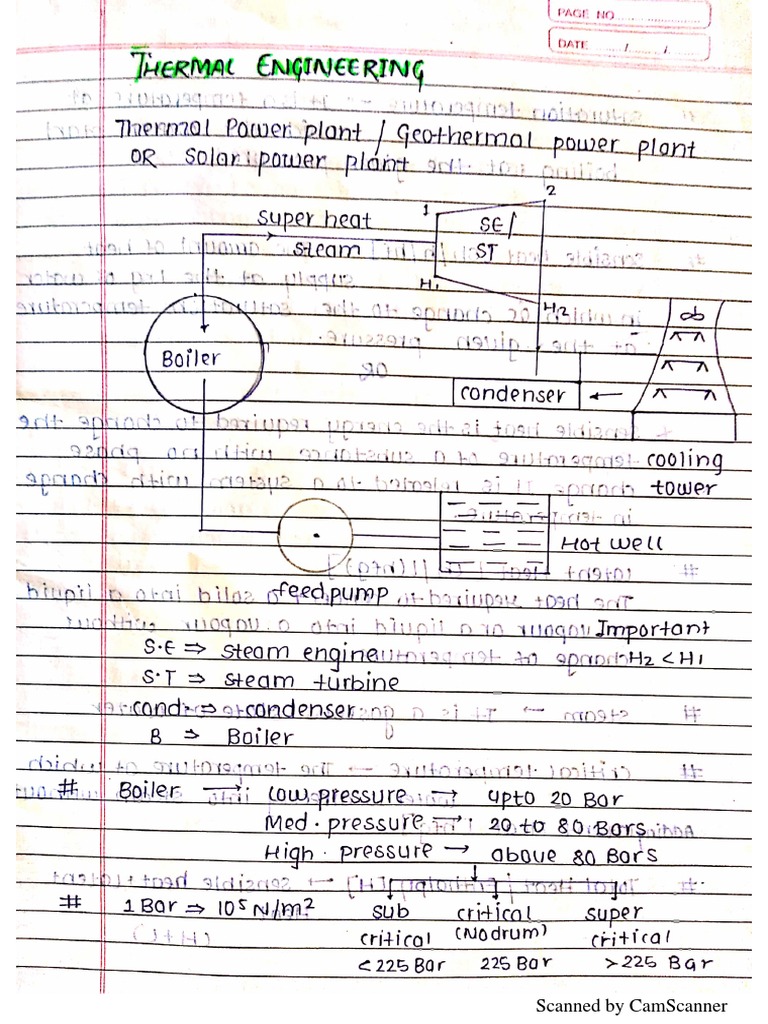 PAGE NO
DATE / /
THERMAL ENGINEERING
Thermal Power plant / Geothermal power plant
OR solar power plant
2
1
super heat
SE/
steam
ST
H1
H2
Boiler
condenser
cooling
tower
Hot well
feed pump
Important
S.E ⇒ steam engine H2 < H1
S.T ⇒ steam turbine
cond. ⇒ condenser
B ⇒ Boiler
# Boiler → Low pressure → upto 20 Bar
Med. pressure → 20 to 80 Bars
High. pressure → above 80 Bars
# 1 Bar ⇒ 10⁵ N/m² sub critical super
critical (No drum) critical
< 225 Bar 225 Bar > 225 Bar
Scanned by CamScanner